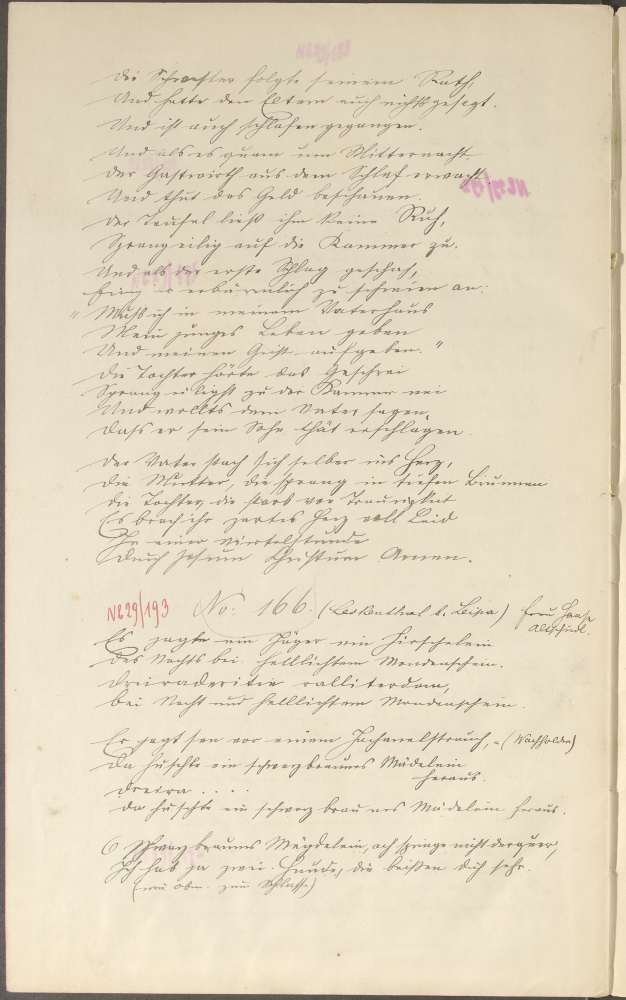 Die Schwester folgte seinem Rath,
Und hatte den Eltern auch nichts gesagt.
Und ist auch schlafen gegangen.
Und als es quam um Mitternacht
Der Gastwirth aus dem Schlaf erwacht
Und thut das Geld beschauen.
Der Teufel ließ ihm keine Ruh,
Sprang eilig auf die Kammer zu.
Und als der erste Schlag geschah,
Fing er erbärmlich zu schreien an:
"Muß ich in meinem Vaterhaus
Mein junges Leben geben
Und meinen Geist aufgeben."
Die Tochter hörte das Geschrei
Sprang eiligst zu der Kammer nei
Und wollts dem Vater sagen,
Dass er sein Sohn thät erschlagen.
Der Vater stach sich selber ins Herz,
Die Mutter, die sprang in tiefen Brunnen
Die Tochter, die starb vor Traurigkeit
Es brach ihr zartes Herz voll Leid
In einer Viertelstunde
Durch Jesum Christum Amen.
N229/193 No: 166. (b. Leipa) Frau
Es jagte ein Jäger ein Hirschelein
Des Nachts bei helllichtem Mondenschein.
bei Nacht und helllichtem Mondenschein.
Er jagt sen vor einem strauch, - (Wachholder)
Da huschte ein schwarzbraunes Mädelein
heraus.
Dreira . . . .
da huschte ein schwarz braunes Mädelein heraus.
6 Schwarzbraunes Mägdelein, ach springe nicht derquer,
Ich hab ja zwei Hunde, die beißen dich sehr.
(wie oben zum Schlusse)